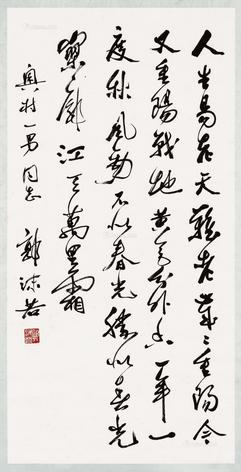 人生易老天難老歲々重陽今
又重陽戰地黄花分外香一年一
度秋風勁不似春光勝似春光
寥廓江天萬里霜
奥村一男同志
郭沫若